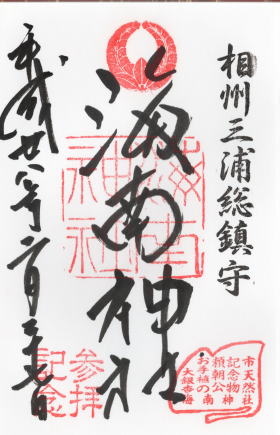 相州三浦総鎮守
海南神社
海南神社
平成廿八年二月
参拝
記念
市天然
記念物
頼朝公
お手植の
大銀杏
海南神社